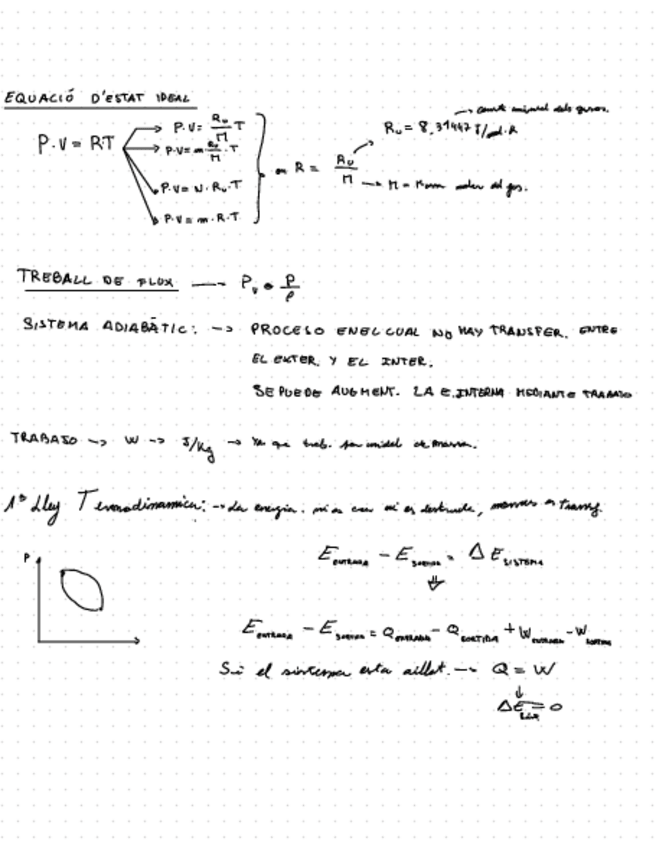 EQUACIÓ D'ESTAT IDEAL
P·V = RT
P·V = Ru/M T
P·V = m · Ru/M · T
P·V = N · Ru · T
P·V = m · R · T
R = Ru/M
Ru = 8,31447 J/mol·K
M =
TREBALL DE FLUX → Pv = P/ρ
SISTEMA ADIABÀTIC: -> PROCESO EN EL CUAL NO HAY TRANSFER. ENTRE
EL EXTER. Y EL INTER.
SE PUEDE AUGMENT. LA E. INTERNA MEDIANTE TRABAJO
TRABAJO -> W -> J/Kg -> Ya que treb. por unidad de massa.
1ª Lley Termodinamica: -> La energia: ni es crea ni es destrueix,
P
E ENTRADA - E SORTIDA = Δ E SISTEMA
E ENTRADA - E SORTIDA = Q ENTRADA - Q SORTIDA + W ENTRADA - W SORTIDA
Si el sistema esta aillat. → Q = W
ΔE = 0